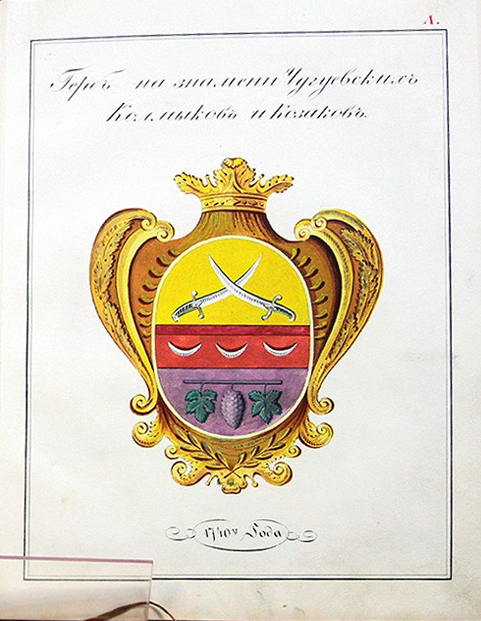 А.
Гербъ на знамени Чугуевскихъ
Колмыковъ и Козаковъ.
1740го Года